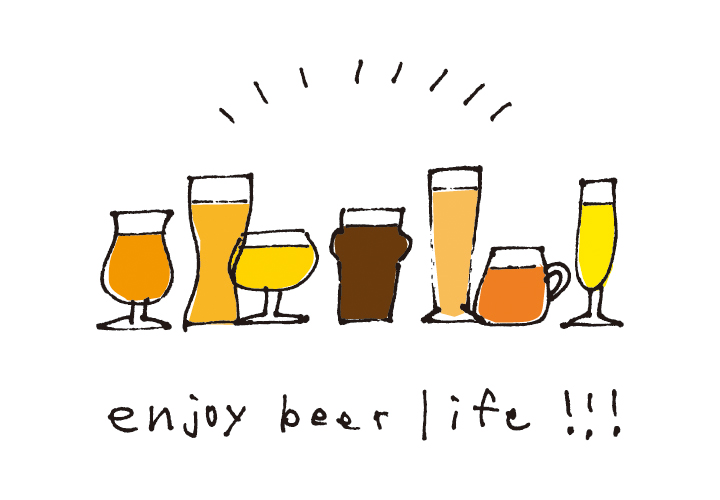 enjoy beer life !!!